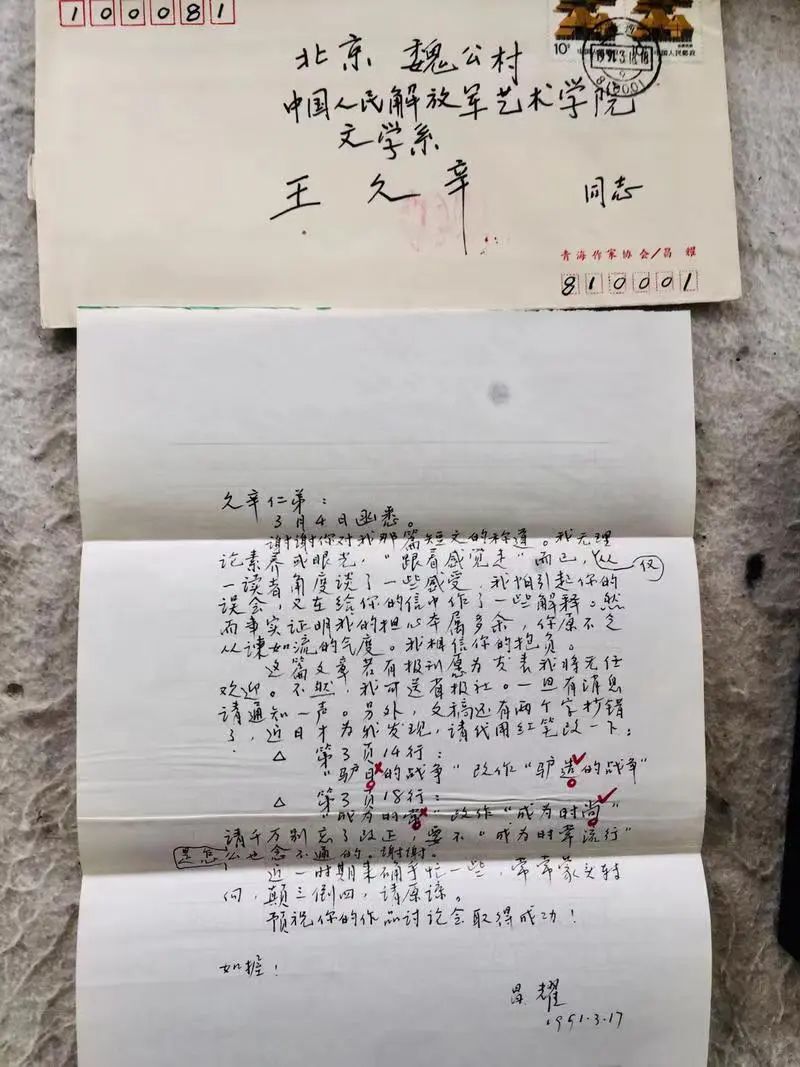 100081
10分
10分
中国人民邮政
1991.3.18.18
810001
北京 魏公村
中国人民解放军艺术学院
文学系
王久辛 同志
青海作家协会/昌耀
810001
久辛仁弟：
3月4日函悉。
谢谢你对我那篇短文的称道。我无理
论素养或眼光，“跟着感觉走”而已，仅从
一读者角度谈了一些感受，我怕引起你的
误会，又在给你的信中作了一些解释。然
而事实证明我的担心本属多余，你原不乏
从谏如流的气度。我相信你的抱负。
这篇文章若有报刊愿为发表我将无任
欢迎。不然，我可送省报社。一旦有消息
请通知一声。另外，文稿还有两个字抄错
了，近日才为我发现，请代用红笔改一下：
△ 第3页14行：
“驴日的战争”改作“驴造的战争”
△ 第3页18行：
“成为时髦”改作“成为时尚”
请千万别忘了改正，要不“成为时髦流行”
是怎么也念不通的。谢谢。
近一时期来确乎忙一些，常常蒙头转
向，颠三倒四，请原谅。
预祝你的作品讨论会取得成功！
如握！
昌耀
1991.3.17